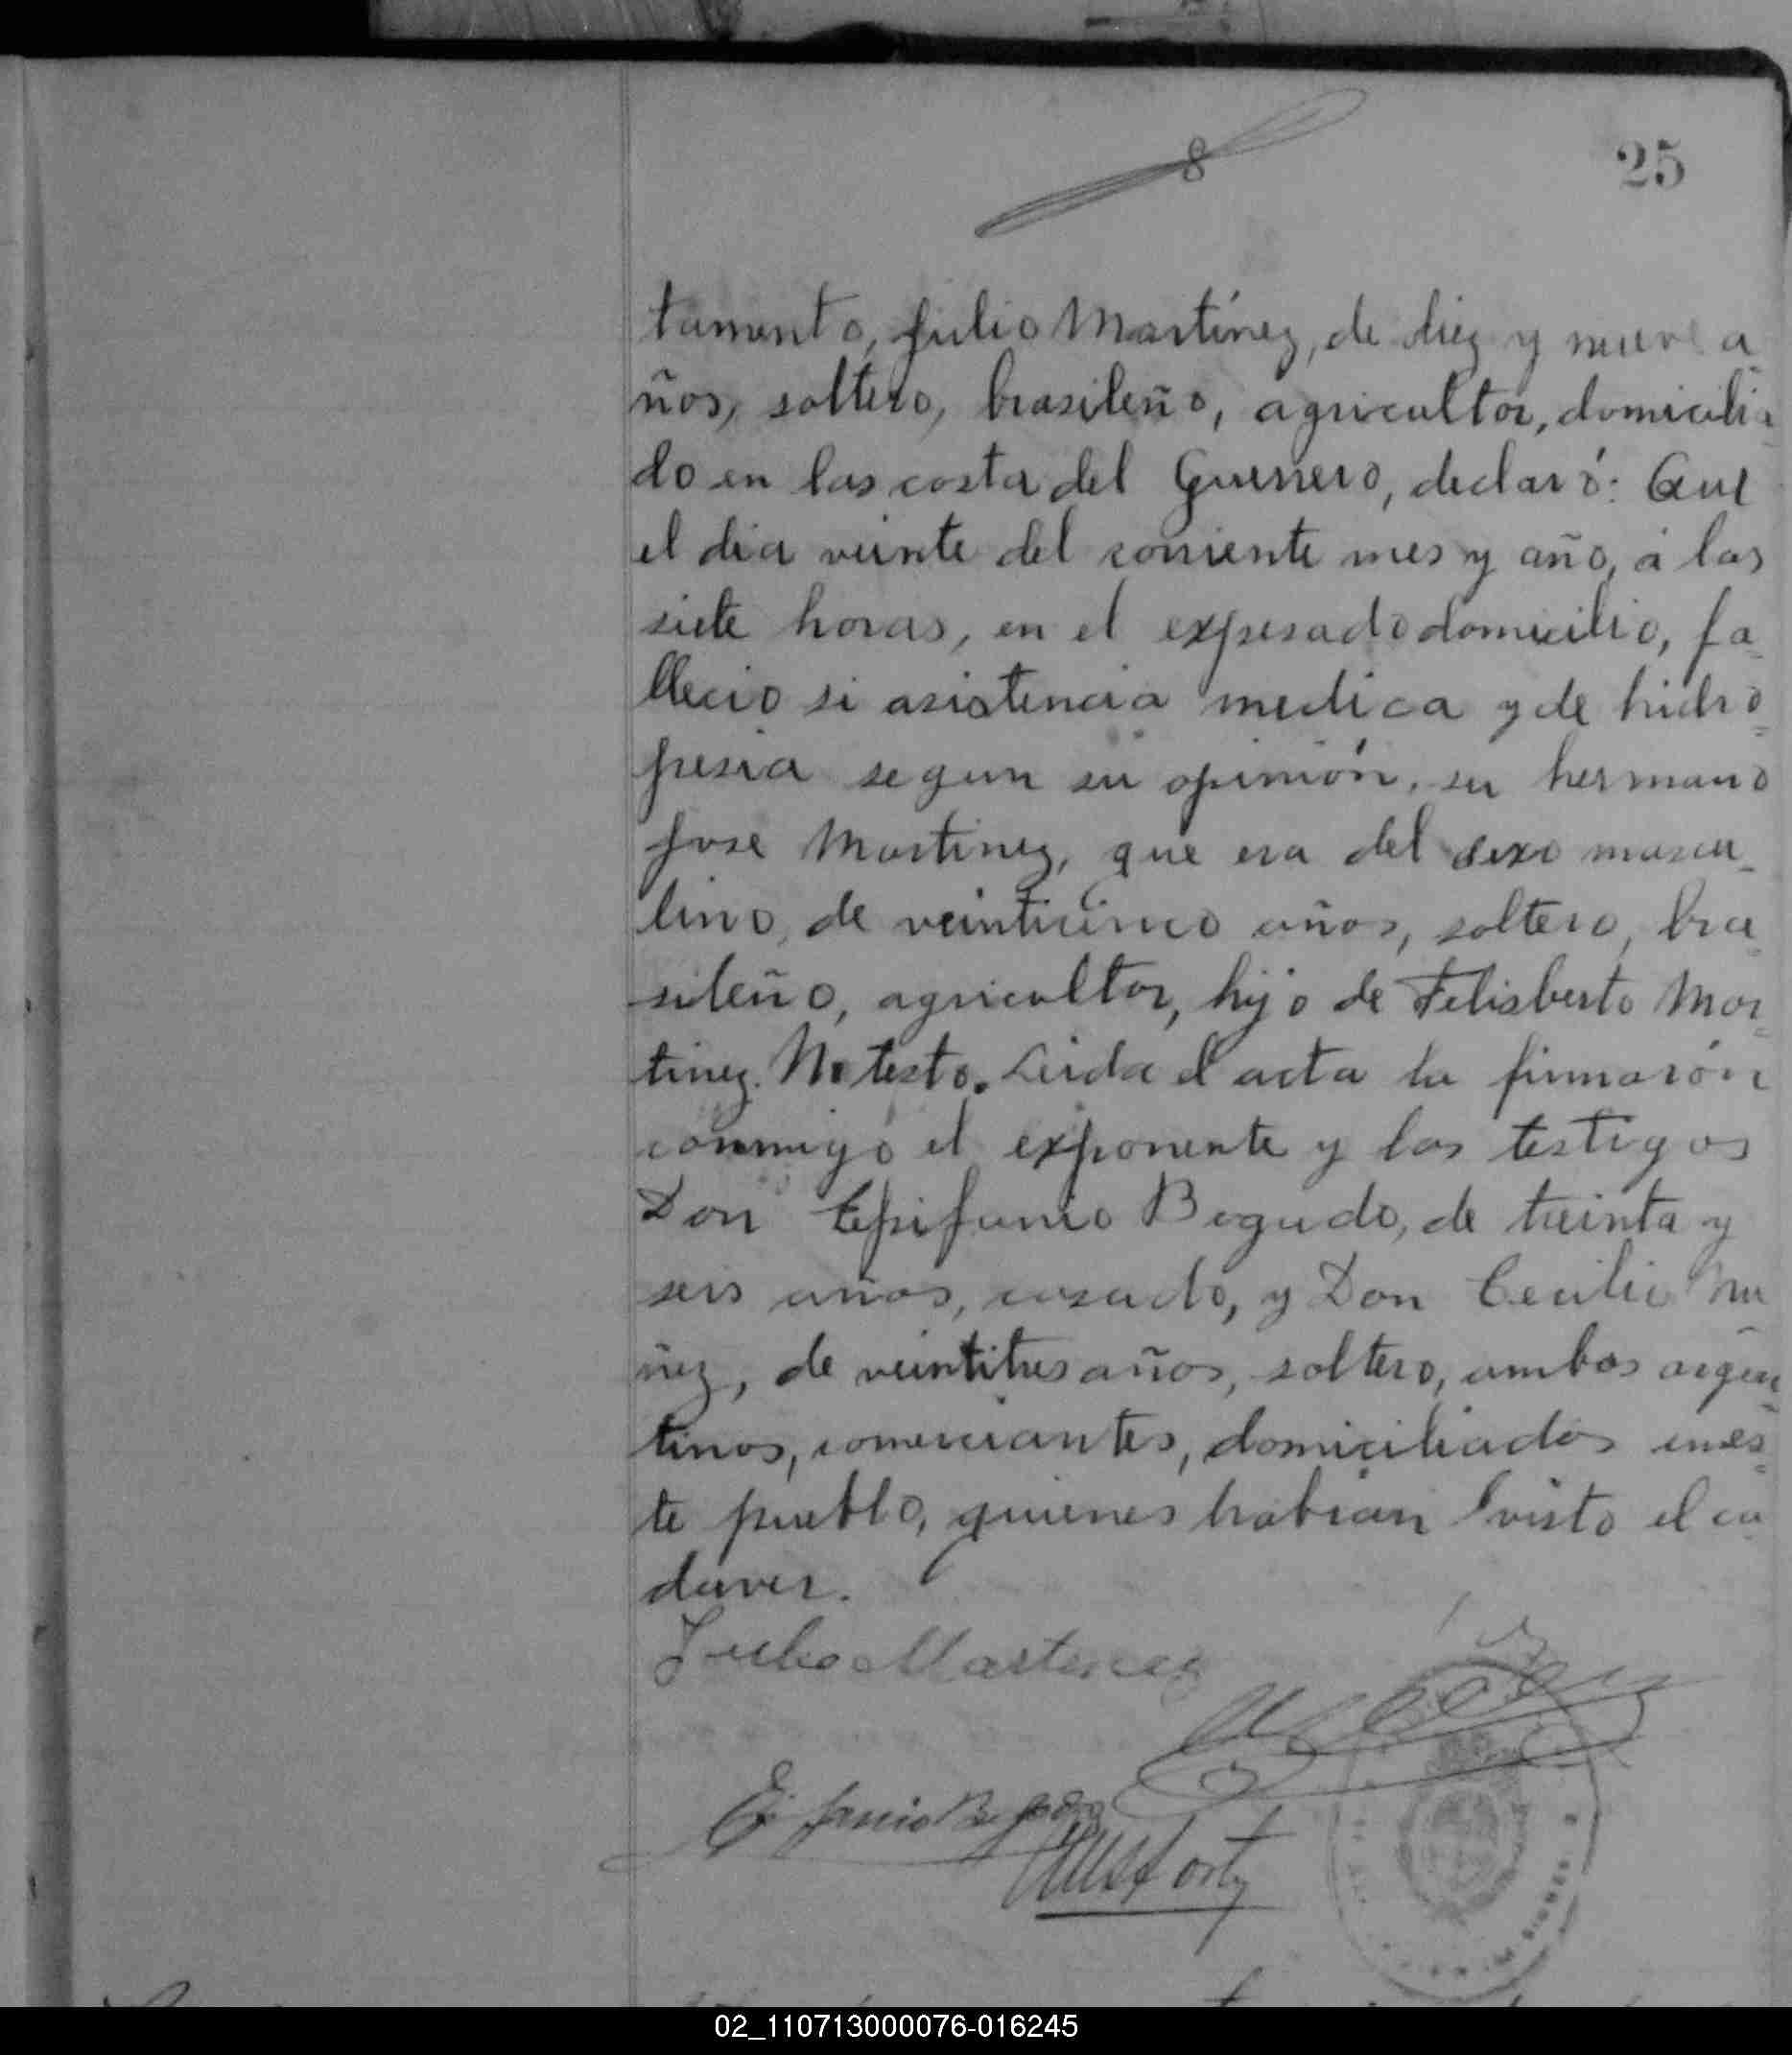 8
25
tamento, Julio Martínez, de diez y nueve a
ños, soltero, brasileño, agricultor, domicilia
do en las costa del Guerrero, declaró: Que
el dia veinte del corriente mes y año, á las
siete horas, en el expresado domicilio, fa_
llecio si asistencia medica y de hidro=
pesia segun su opinión, su hermano
José Martinez, que era del sexo mascu_
lino, de veinticinco años, soltero, bra_
sileño, agricultor, hijo de Felisberto Mar_
tinez. No testo. Leida el acta la firmarón
conmigo el exponente y los testigos
Don Epifanio Bogado, de treinta y
seis años, casado, y Don Cecilio Nu
ñez, de veintitres años, soltero, ambos argen_
tinos, comerciantes, domiciliados en es=
te pueblo, quienes habian visto el ca
daver.
Julio Martinez
02_110713000076-016245